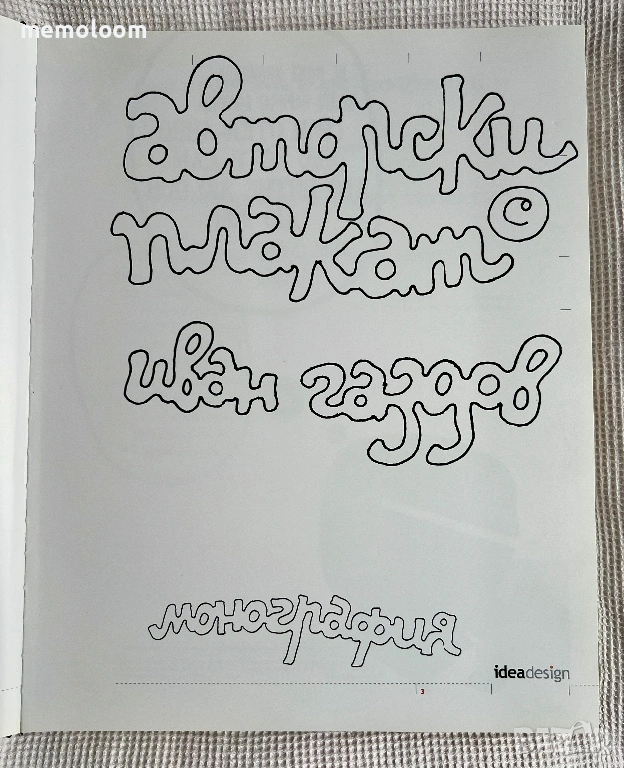 memoloom
авторски
плакат ©
иван газдов
монография
ideadesign
3